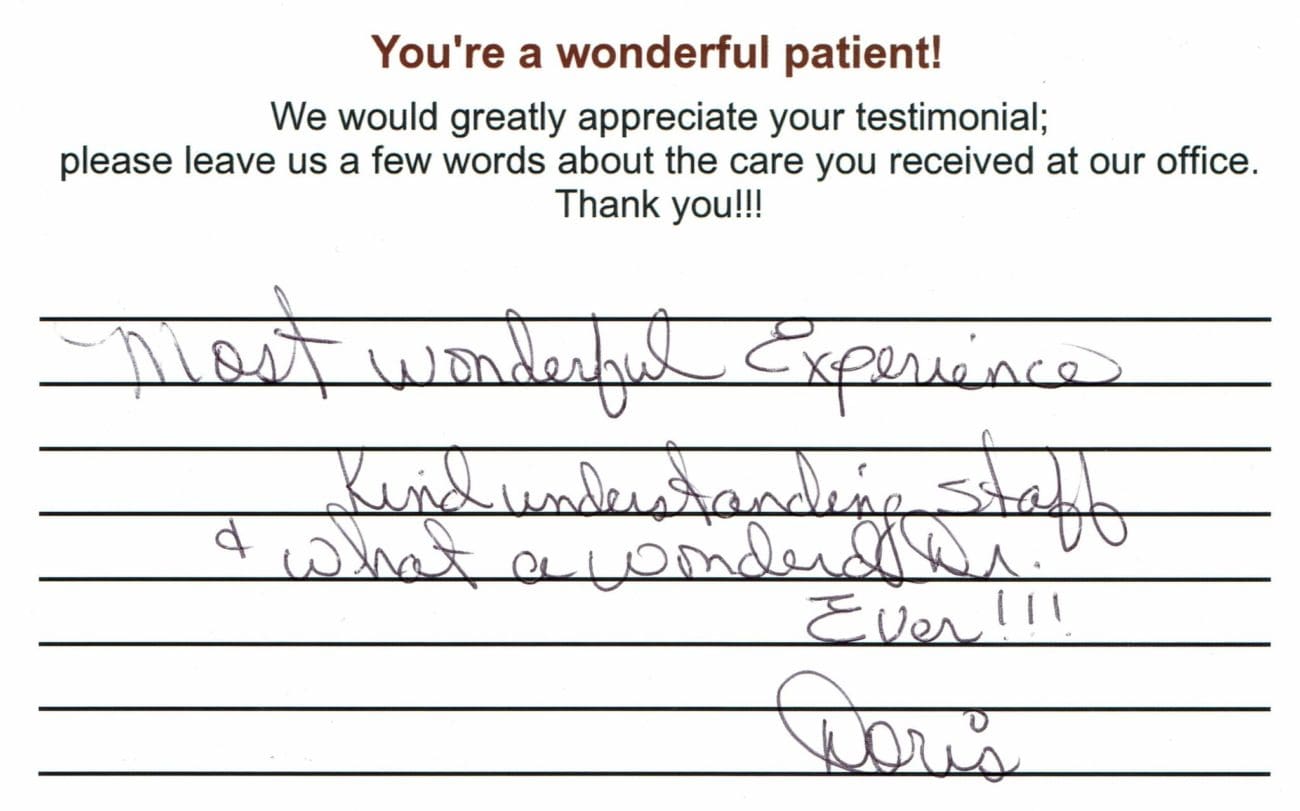 You're a wonderful patient!
We would greatly appreciate your testimonial;
please leave us a few words about the care you received at our office.
Thank you!!!
Most wonderful Experience
Kind understanding staff
& what a Dr.
Ever!!!
Doris